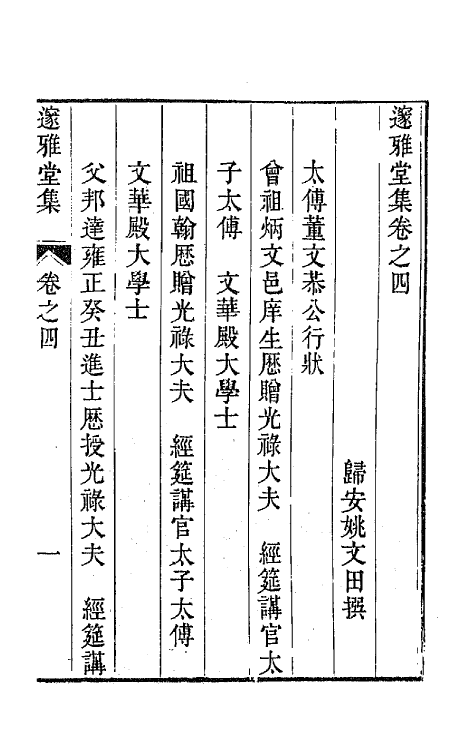 邃雅堂集卷之四
歸安姚文田撰
太傅董文恭公行狀
曾祖炳文邑庠生歴贈光祿大夫　經筵講官太
子太傅　文華殿大學士
祖國翰歴贈光祿大夫　經筵講官太子太傅
文華殿大學士
父邦達雍正癸丑進士歴授光祿大夫　經筵講
邃雅堂集　卷之四　一